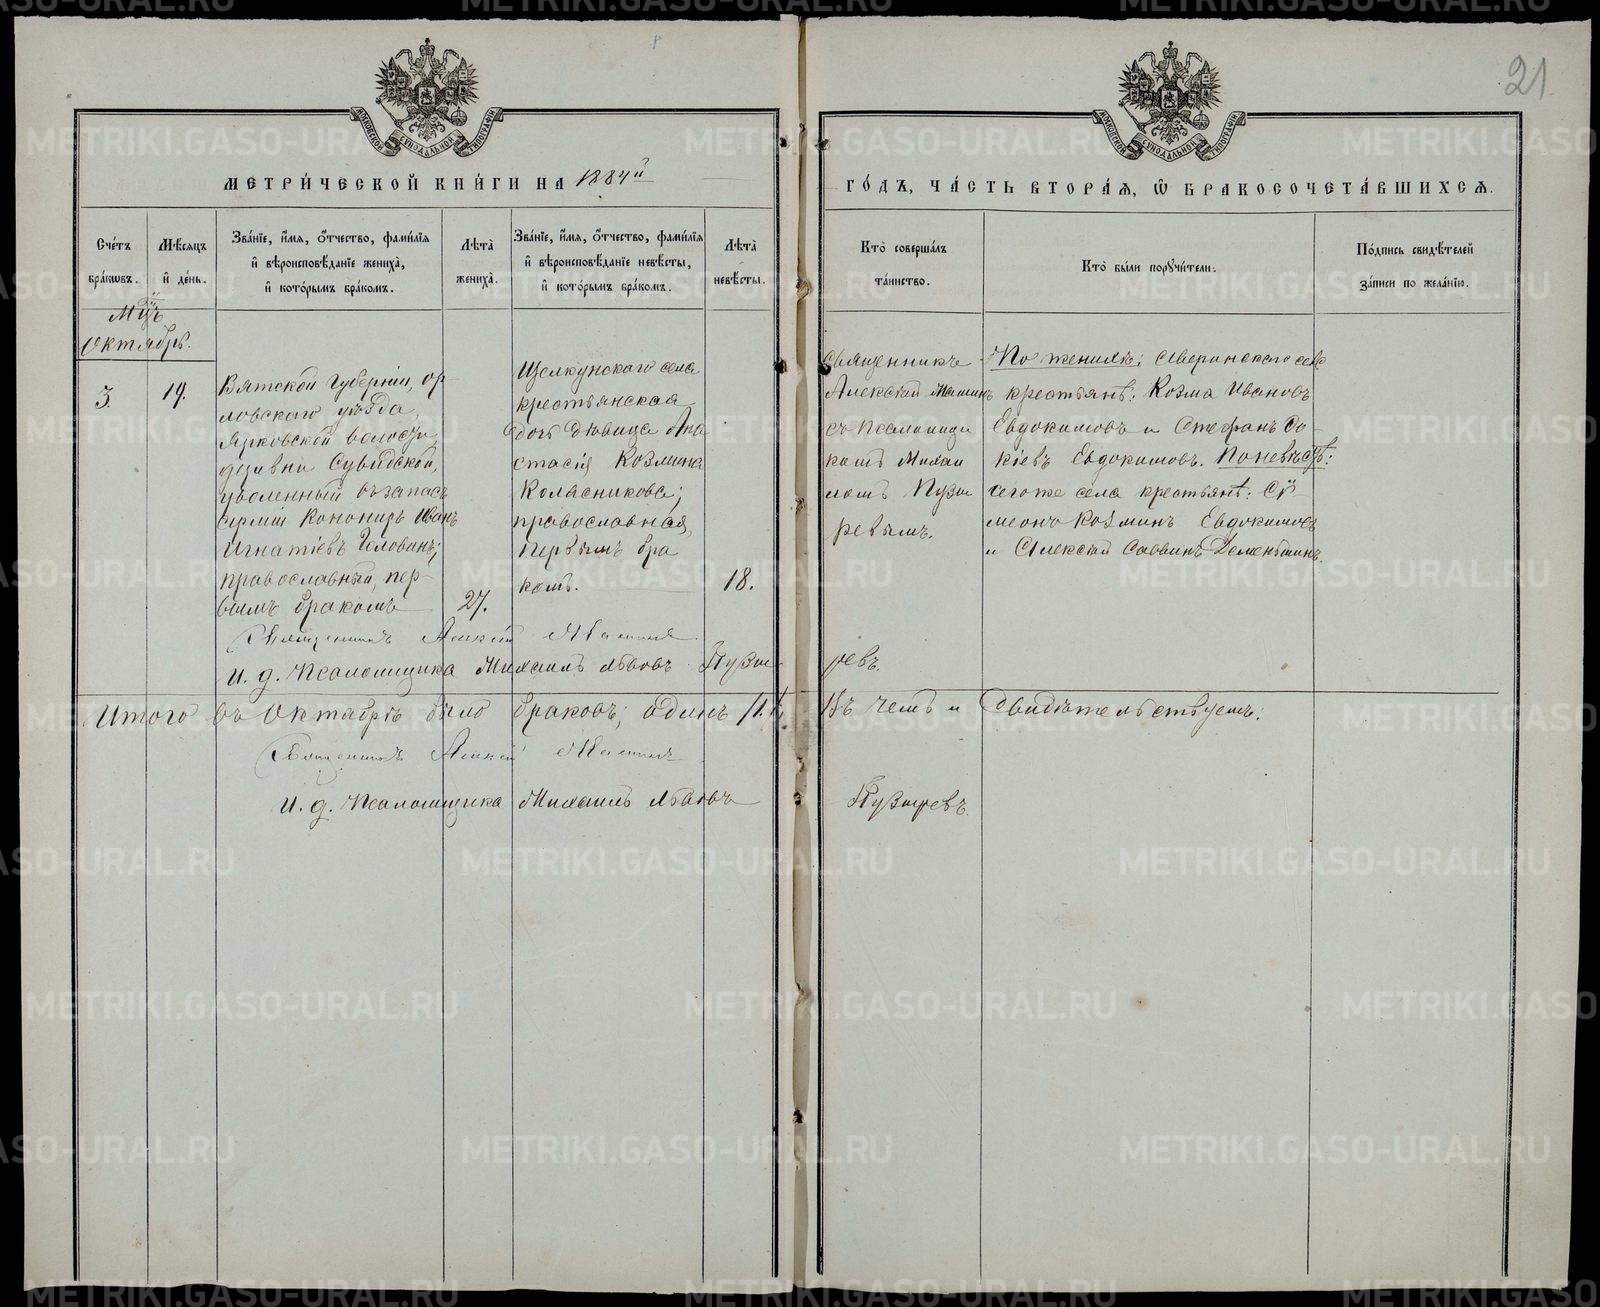 21
МЕТРИЧЕСКОЙ КНИГИ НА 1884й
ГОДЪ, ЧАСТЬ ВТОРАЯ, Ѡ БРАКОСОЧЕТАВШИХСЯ.
Счетъ браковъ.
Мѣсяцъ и день.
Званіе, имя, отчество, фамилія и вѣроисповѣданіе жениха, и которымъ бракомъ.
Лѣта жениха.
Званіе, имя, отчество, фамилія и вѣроисповѣданіе невѣсты, и которымъ бракомъ.
Лѣта невѣсты.
Кто совершалъ таинство.
Кто были поручители.
Подпись свидѣтелей записи по желанію.
Мцъ
Октябрь.
3.
19.
Вятской Губерніи, Ор-
ловскаго уѣзда,
волости,
деревни
уволенный въ запасъ
арміи Канониръ Иванъ
Игнатіевъ Головинъ;
православный, пер-
вымъ бракомъ
27.
Щелкунскаго села
крестьянская
дочь дѣвица Ана
стасія Козмина
Колясникова;
православная,
первымъ бра
комъ.
18.
Священникъ
Алексій
съ Псаломщи
комъ Михаи
ломъ Пузы
ревымъ.
По женихѣ: Аверинскаго села
крестьянѣ: Козма Ивановъ
Евдокимовъ и Стефанъ Фо-
кіевъ Евдокимовъ. По невѣстѣ:
тогоже села крестьянѣ: Сѵ-
меонъ Козминъ Евдокимовъ
и Алексій Саввинъ Деменьшинъ.
Священникъ Алексій
И. д. Псаломщика Михаилъ Львовъ Пузы
ревъ.
Итого въ Октябрѣ было браковъ; одинъ /1./
Въ чемъ и Свидѣтельствуемъ:
Священникъ Алексій
И. д. Псаломщика Михаилъ Львовъ
Пузыревъ.